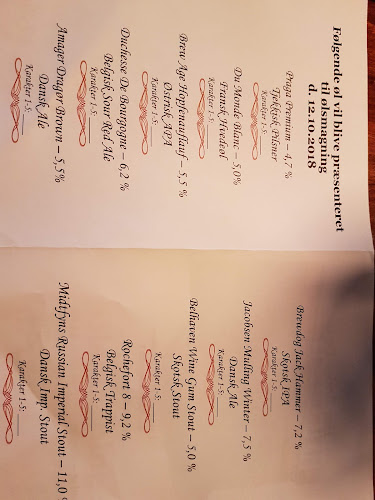 Følgende øl vil blive præsenteret
til ølsmagning
d. 12.10.2018
Praga Premium – 4,7 %
Tjekkisk Pilsner
Karakter 1-5: ____
Du Monde Blanc – 5,0%
Fransk Hvedeøl
Karakter 1-5: ____
Brew Age Hopfenauflauf – 5,5 %
Østrisk APA
Karakter 1-5: ____
Duchesse De Bourgogne – 6,2 %
Belgisk Sour Red Ale
Karakter 1-5: ____
Amager Dragør Brown – 5,5%
Dansk Ale
Karakter 1-5: ____
Brewdog Jack Hammer – 7,2 %
Skotsk IPA
Karakter 1-5: ____
Jacobsen Mulling Winter – 7,5 %
Dansk Ale
Karakter 1-5: ____
Belhaven Wine Gum Stout – 5,0 %
Skotsk Stout
Karakter 1-5: ____
Rochefort 8 – 9,2 %
Belgisk Trappist
Karakter 1-5: ____
Midtfyns Russian Imperial Stout – 11,0
Dansk Imp. Stout
Karakter 1-5: ____